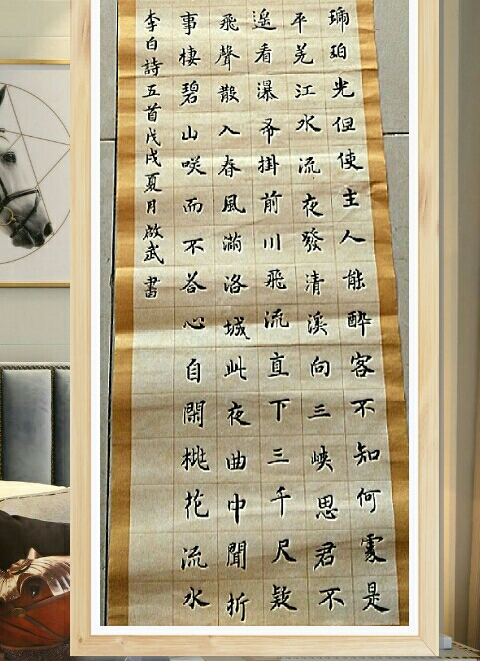 琥珀光但使主人能醉客不知何處是
平羌江水流夜發清溪向三峽思君不
遙看瀑布掛前川飛流直下三千尺疑
飛聲散入春風滿洛城此夜曲中聞折
事棲碧山咲而不答心自閑桃花流水
李白詩五首戊戌夏月啟武書